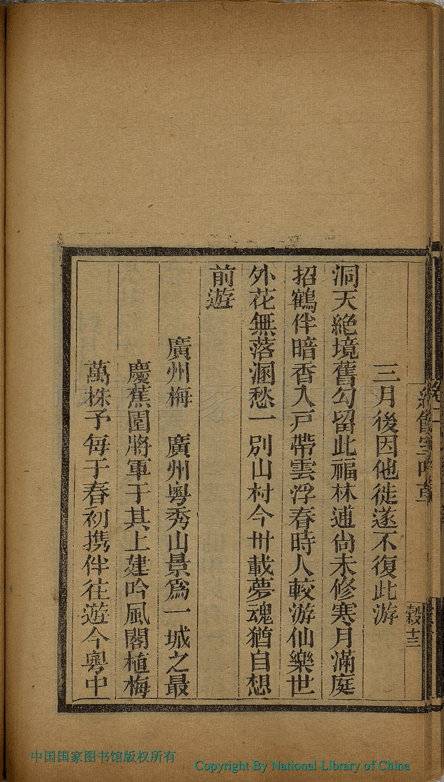 三月後因他徙遂不復此游
洞天絕境舊勾留此福林逋尚未修寒月滿庭
招鶴伴暗香入戸帶雲浮春時人較游仙樂世
外花無落溷愁一別山村今卅載夢魂猶自想
前遊
廣州梅 廣州粵秀山景爲一城之最
慶蕉園將軍于其上建吟風閣植梅
萬株予每于春初携伴往遊今粵中
十三
中国国家图书馆版权所有
Copyright By National Library of China